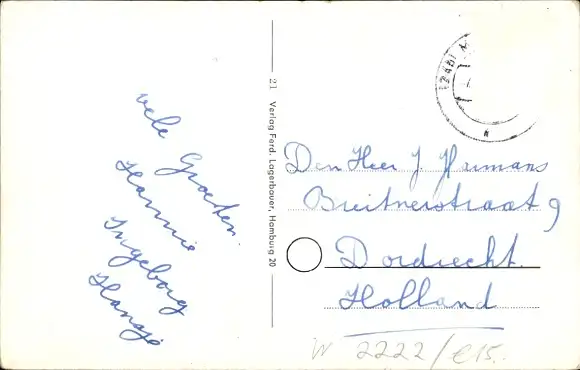 vele Groeten
Hannie
Ingeborg
Hansje
21 Verlag Ferd. Lagerbauer, Hamburg 20
(24b)
Den Heer J. Harmans
Breitnerstraat 9
Dordrecht.
Holland
W 2222/€15.